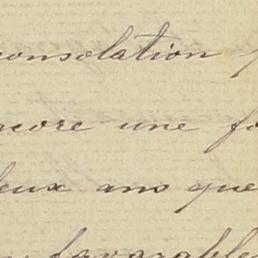 consolation
encore une fo
deux ans que
favorable